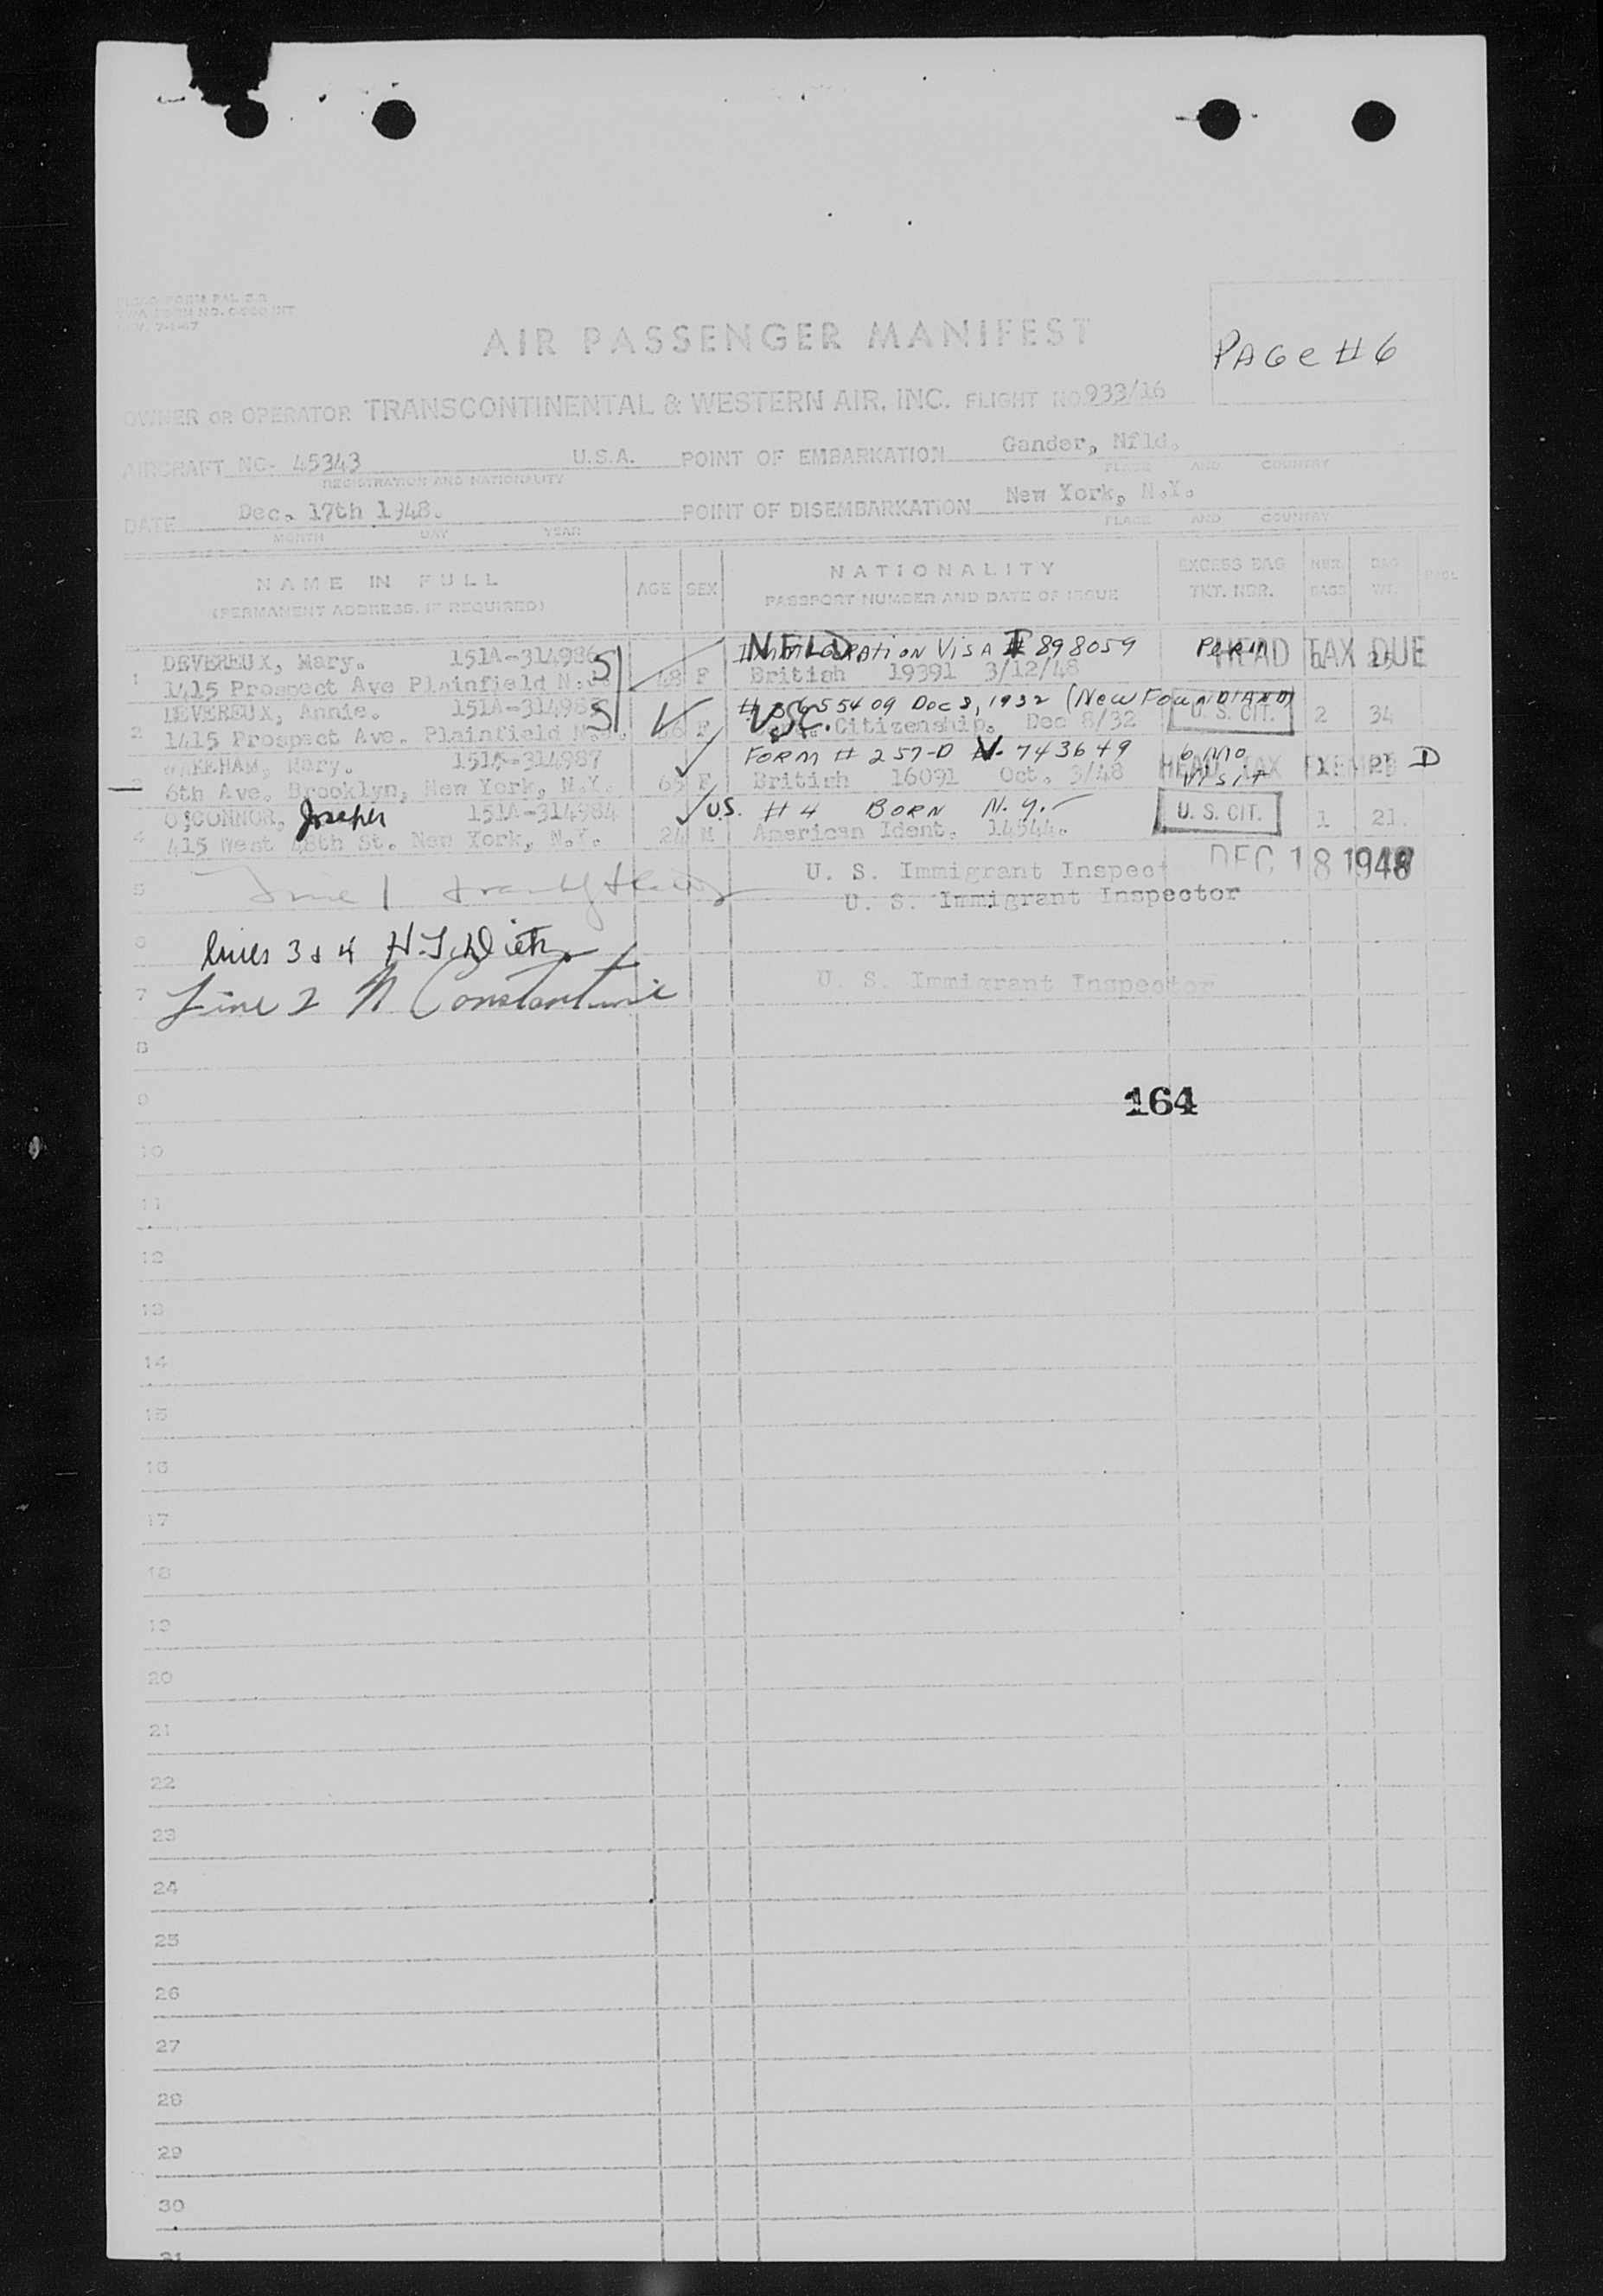 AIR PASSENGER MANIFEST
PAGE # 6
OWNER OR OPERATOR TRANSCONTINENTAL & WESTERN AIR, INC. FLIGHT NO. 933/16
AIRCRAFT NC- 45343 U.S.A. POINT OF EMBARKATION Gander, Nfld.
REGISTRATION AND NATIONALITY PLACE AND COUNTRY
DATE Dec. 17th 1948. POINT OF DISEMBARKATION New York, N.Y.
MONTH DAY YEAR PLACE AND COUNTRY
NAME IN FULL AGE SEX NATIONALITY EXCESS BAG NBR. BAG
(PERMANENT ADDRESS, IF REQUIRED) PASSPORT NUMBER AND DATE OF ISSUE TKT. NBR. BAGS WT.
NFLD
DEVEREUX, Mary. 151A-314986 Immigration Visa # 898059 Perm HEAD TAX DUE
1 1415 Prospect Ave Plainfield N.J. 48 F British 19391 3/12/48
DEVEREUX, Annie. 151A-314985 # 3655409 Dec 8, 1932 (NewFoundland)
2 1415 Prospect Ave. Plainfield N.J. F USC. Citizenship. Dec 8/32 U. S. CIT. 2 34
WAKEHAM, Mary. 151A-314987 FORM # 257-D V. 743649 6 mo Visit HEAD TAX EXEMPT D
3 6th Ave. Brooklyn, New York, N.Y. 65 F British 16091 Oct. 3/48 1 21
O'CONNOR, Joseph 151A-314984 U.S. # 4 BORN N.Y.
4 415 West 48th St. New York, N.Y. 24 M American Ident. 14544. U. S. CIT. 1 21.
U. S. Immigrant Inspect DEC 18 1948
5 Line 1 U. S. Immigrant Inspector
6 lines 3 & 4
7 Line 2 N Constantine U. S. Immigrant Inspector
8
9 164
10
11
12
13
14
15
16
17
18
19
20
21
22
23
24
25
26
27
28
29
30
31